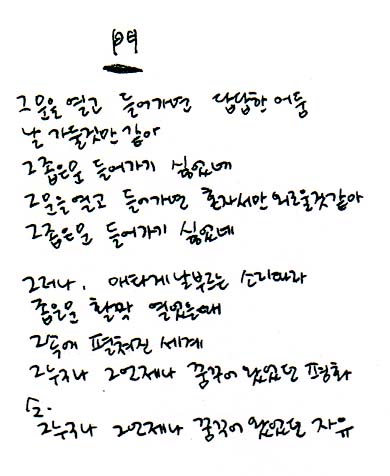 門
그 문을 열고 들어가면 답답한 어둠
날 가둘것만 같아
그 좁은문 들어가기 싫었네
그문을 열고 들어가면 혼자서만 외로울것같아
그 좁은문 들어가기 싫었네
그러나, 애타게 날부르는 소리따라
좁을문 활짝 열었을때
그속에 펼쳐진 세계
그누구나 그언제나 꿈꾸어 왔었던 평화
또.
그누구나 그언제나 꿈꾸어 왔었던 자유